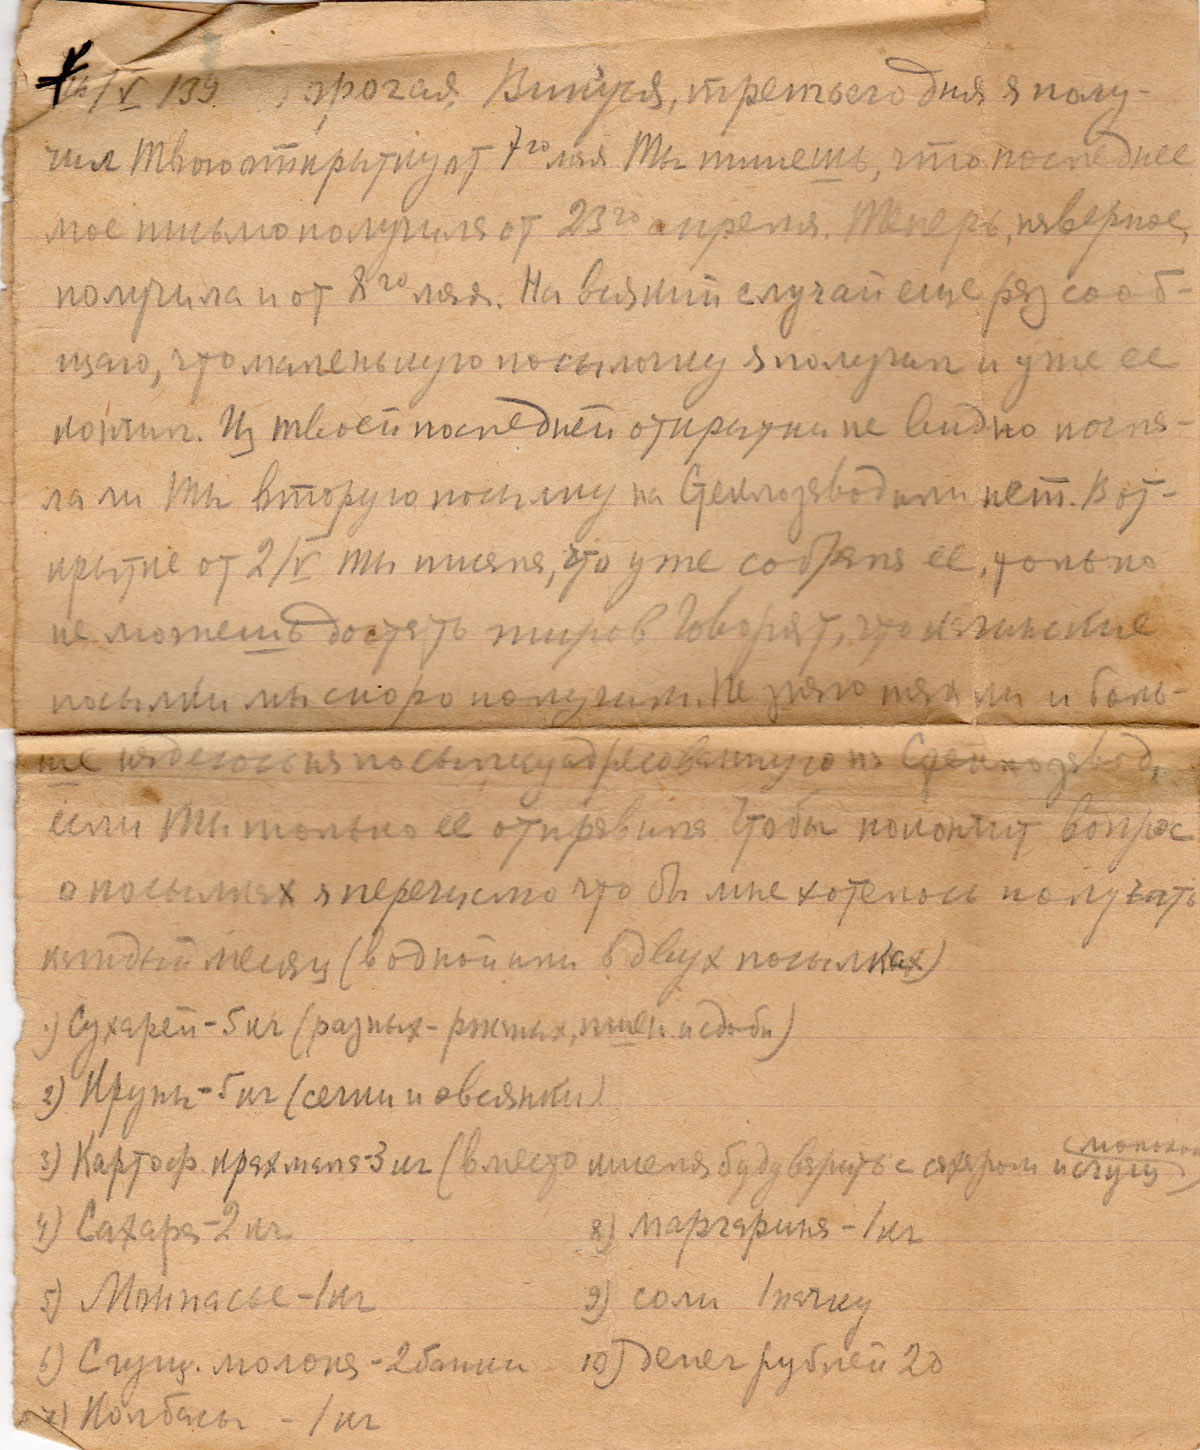 /V 139 дорогая Винуся, третьего дня я полу-
чил твою открытку от 7го мая Ты пишешь, что последнее
мое письмо получила от 23го апреля. Теперь, наверное,
получила и от 8го мая. На всякий случай еще раз сооб-
щаю, что маленькую посылочку я получил и уже ее
кончил. Из твоей последней открытки не видно посла-
ла ли Ты вторую посылку на Стеклозавод или нет. В от-
крытке от 2/V ты писала, что уже собрала ее, только
не можешь достать жиров Говорят, что казанские
посылки мы скоро получим. Не знаю как ли и боль-
ше надеюсь на посылку адресованную на Стеклозавод,
если Ты только ее отправила Чтобы кончить вопрос
о посылках я перечислю что бы мне хотелось получать
каждый месяц (в одной или в двух посылках)
1) Сухарей - 5 кг (разных - ржаных, пшен. и сдобн)
2) Крупы - 5 кг (сечки и овсянки)
3) Картоф крахмала - 3 кг (вместо киселя буду варить с сахаром и сгущ молоком)
4) Сахара - 2 кг
5) Монпасье - 1 кг
6) Сгущ. молока - 2 банки
7) Колбасы - 1 кг
8) маргарина - 1 кг
9) соли 1 пачку
10) Денег рублей 20